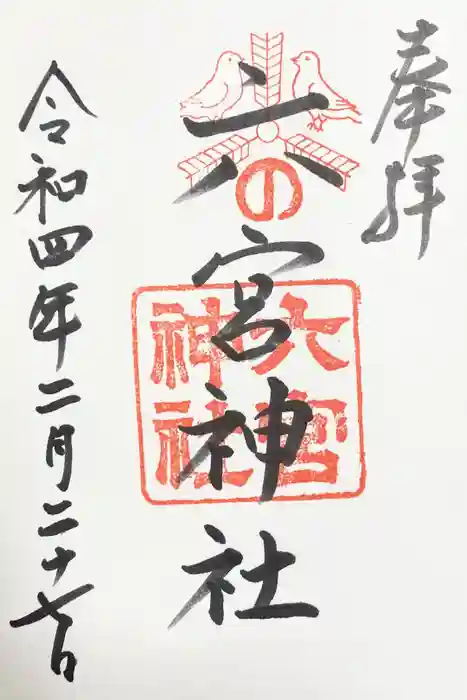 奉拝
六の宮神社
六宮神社
令和四年二月二十七日